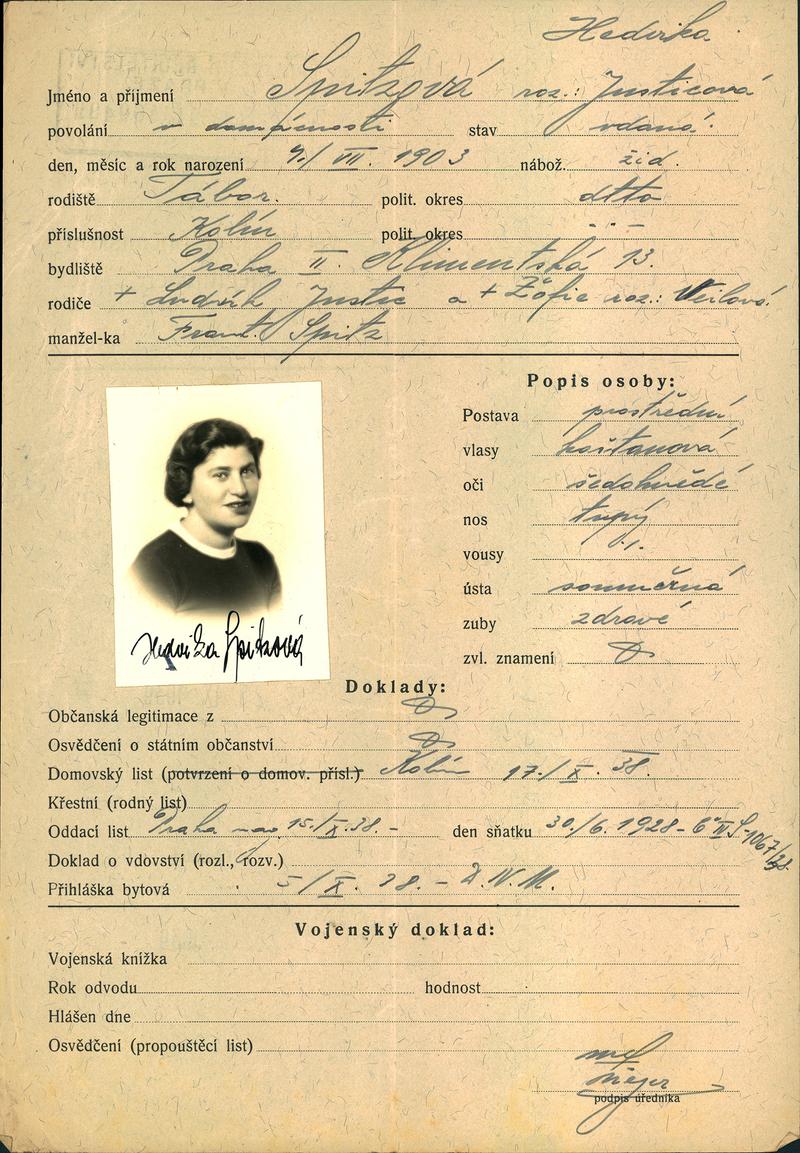 Hedvika
Jméno a příjmení Spitzová roz.: Justicová
povolání v domácnosti stav vdaná.
den, měsíc a rok narození 9./VII. 1903 nábož. žid.
rodiště Tábor. polit. okres dtto
příslušnost Kolín polit. okres
bydliště Praha II. Klimentská 13.
rodiče + Ludvík Justic a + Žofie roz.: Weilová.
manžel-ka Frant. Spitz
Popis osoby:
Postava prostřední
vlasy kaštanová
oči šedohnědé
nos tupý
vousy ./.
ústa souměrná
zuby zdravé
zvl. znamení
Hedvika Spitzová
Doklady:
Občanská legitimace z
Osvědčení o státním občanství
Domovský list (potvrzení o domov. přísl.) Kolín 17./X. 38.
Křestní (rodný list)
Oddací list Praha 15./X.38.- den sňatku 30./6. 1928 -
Doklad o vdovství (rozl., rozv.)
Přihláška bytová 5/X. 38. -
Vojenský doklad:
Vojenská knížka
Rok odvodu hodnost
Hlášen dne
Osvědčení (propouštěcí list)
podpis úředníka